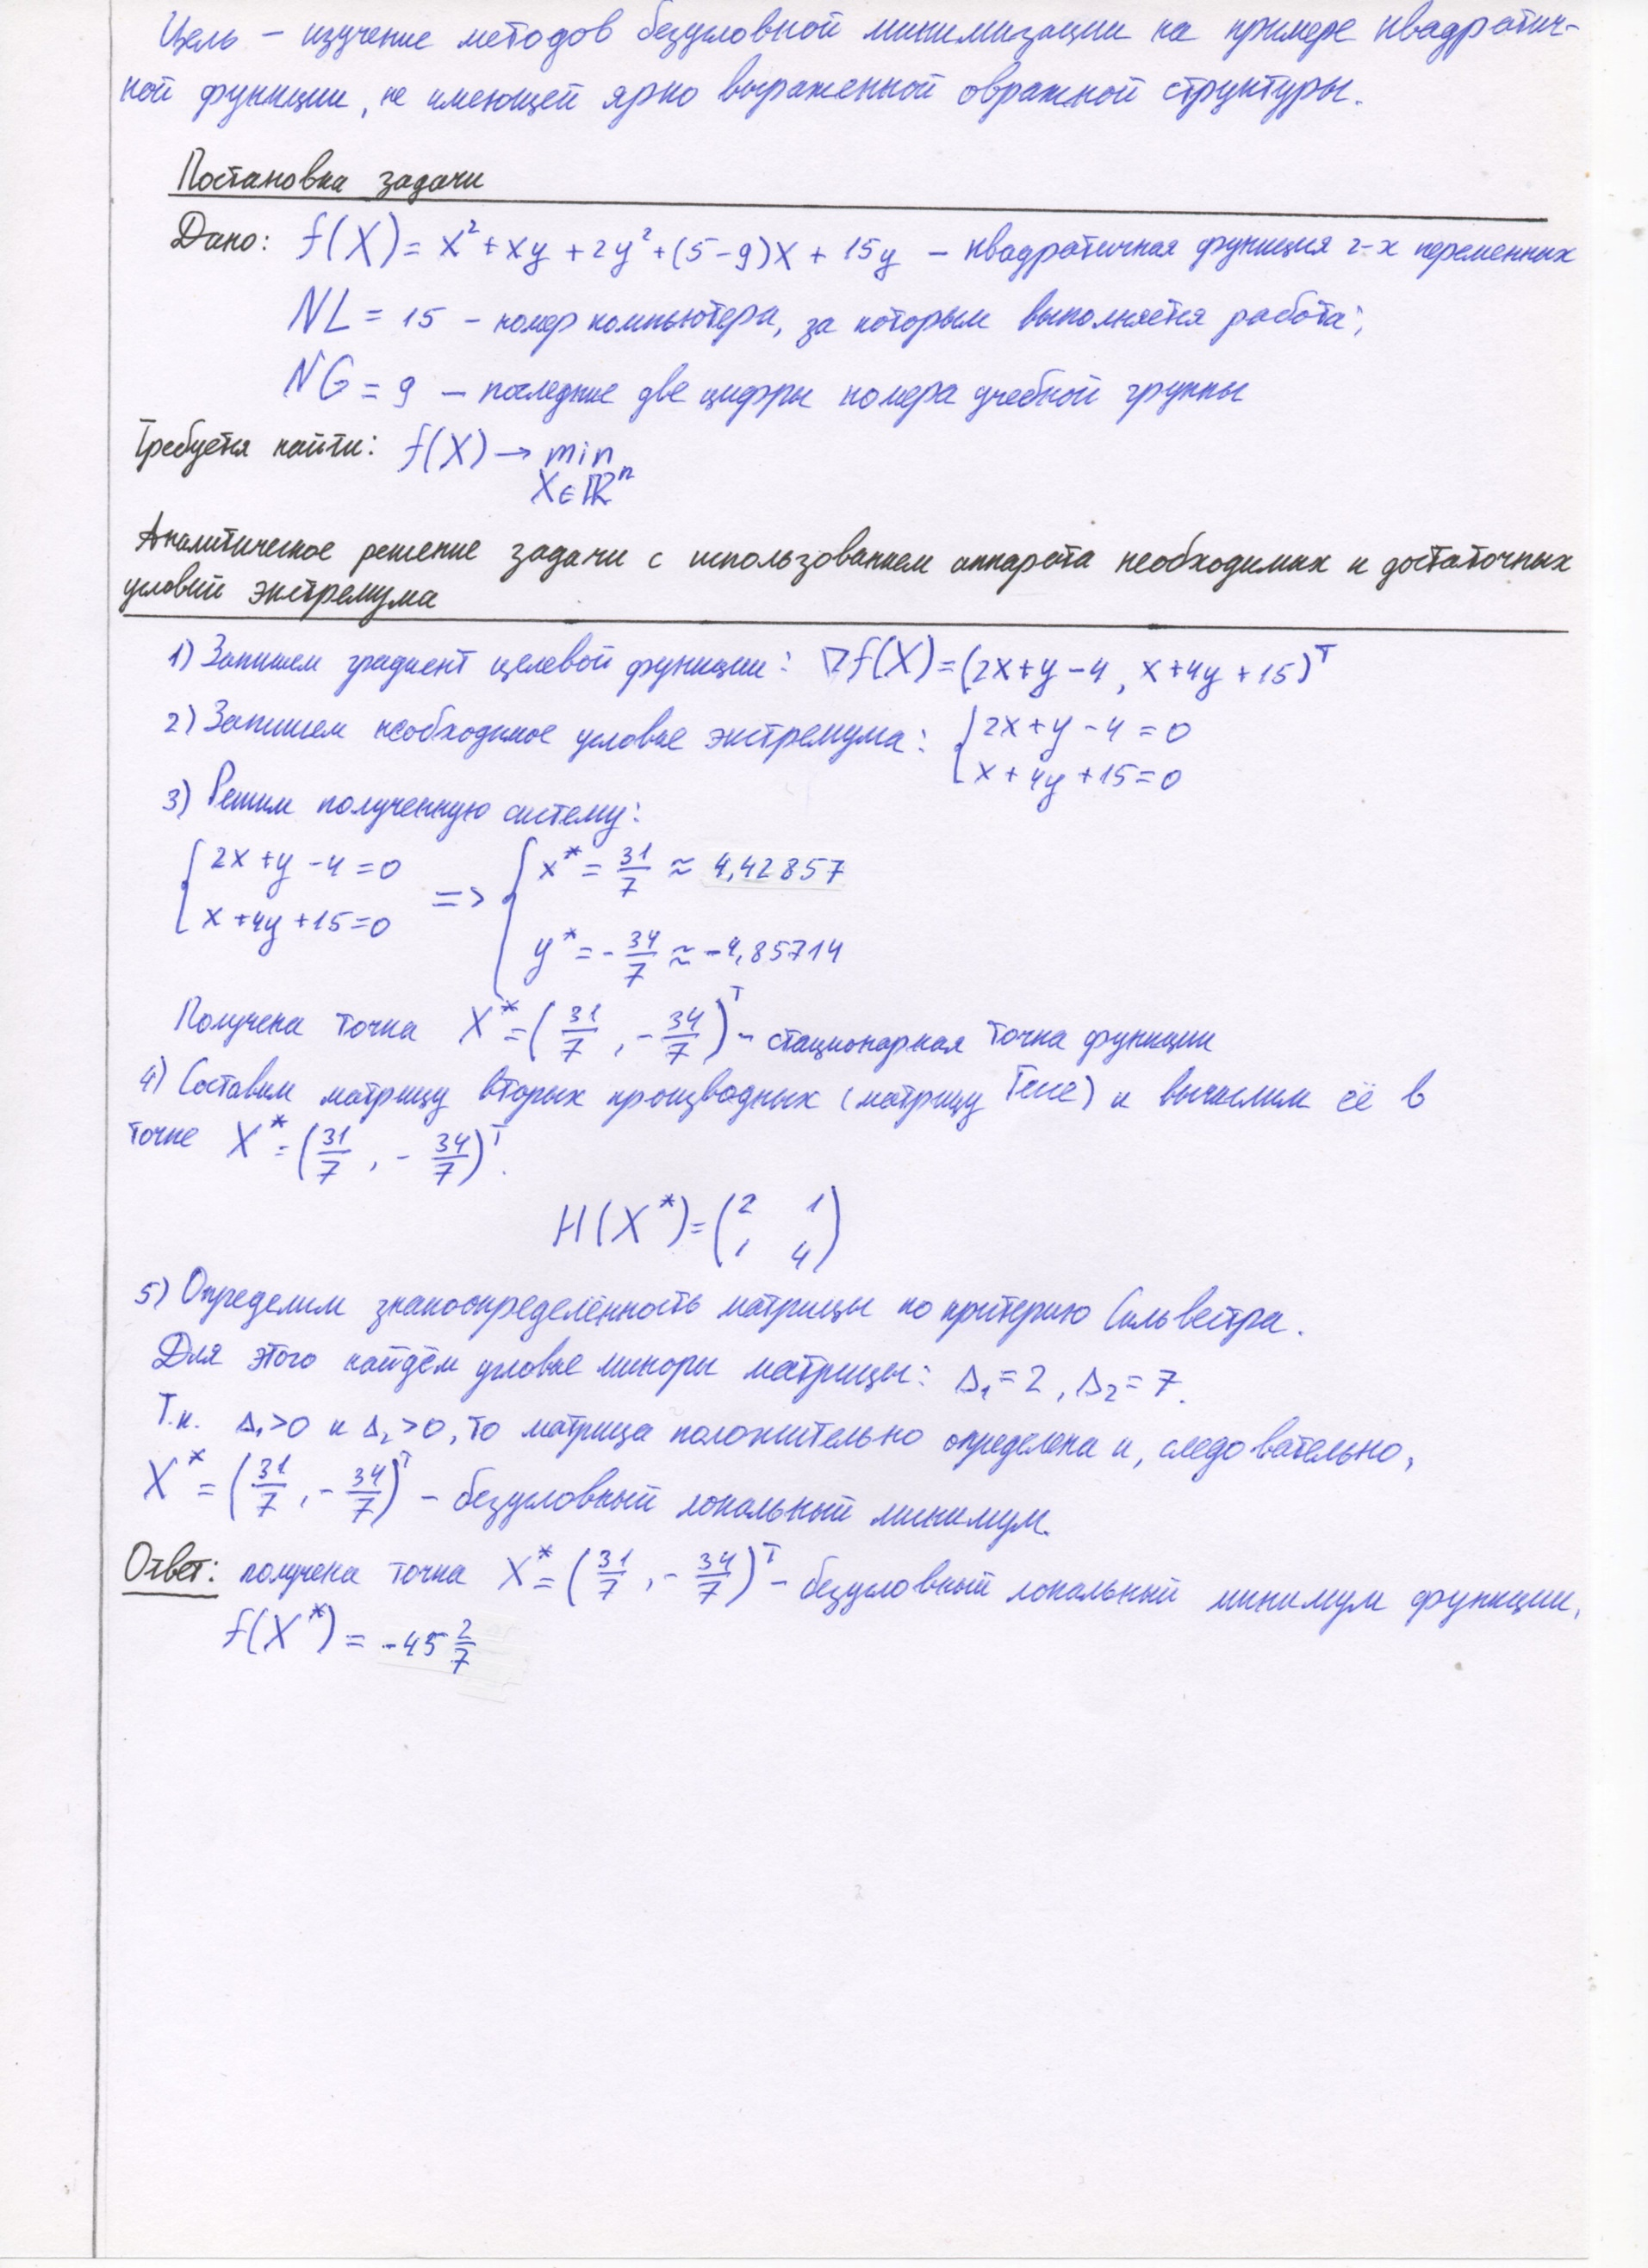 Цель – изучение методов безусловной минимизации на примере квадратич-
ной функции, не имеющей ярко выраженной овражной структуры.
Постановка задачи
Дано: f(X) = x² + xy + 2y² + (5-9)x + 15y – квадратичная функция 2-х переменных
NL = 15 – номер компьютера, за которым выполняется работа;
NG = 9 – последние две цифры номера учебной группы
Требуется найти: f(X) → min
X∈ℝⁿ
Аналитическое решение задачи с использованием аппарата необходимых и достаточных
условий экстремума
1) Запишем градиент целевой функции: ∇f(X) = (2x+y-4, x+4y+15)ᵀ
2) Запишем необходимое условие экстремума: { 2x+y-4=0
x+4y+15=0
3) Решим полученную систему:
{ 2x+y-4=0 => { x* = 31/7 ≈ 4,42857
x+4y+15=0 y* = -34/7 ≈ -4,85714
Получена точка X* = (31/7, -34/7)ᵀ – стационарная точка функции
4) Составим матрицу вторых производных (матрицу Гессе) и вычислим её в
точке X* = (31/7, -34/7)ᵀ.
H(X*) = (2 1
1 4)
5) Определим знакоопределённость матрицы по критерию Сильвестра.
Для этого найдём угловые миноры матрицы: Δ₁=2, Δ₂=7.
Т.к. Δ₁>0 и Δ₂>0, то матрица положительно определена и, следовательно,
X* = (31/7, -34/7)ᵀ – безусловный локальный минимум.
Ответ: получена точка X* = (31/7, -34/7)ᵀ – безусловный локальный минимум функции,
f(X*) = -45 2/7